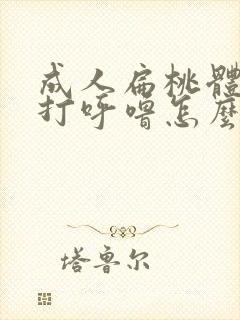 成人扁桃體
打呼嚕怎麼
塔魯尔